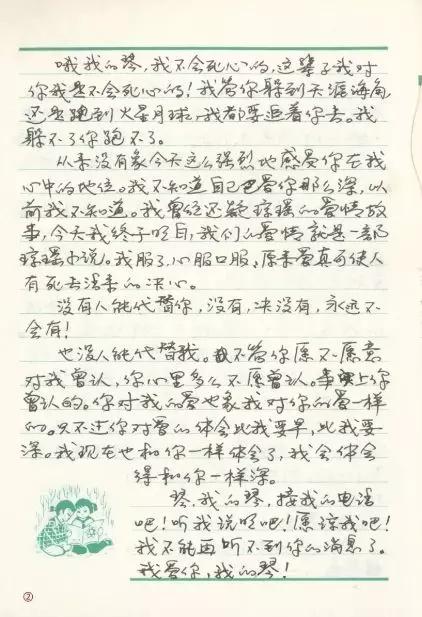 哦我的琴,我不会死心的,这辈子我对
你我是不会死心的!我管你躲到天涯海角,
还是跑到火星月球,我都要追着你去。我
躲不了你跑不了。
从来没有象今天这么强烈地感受你在我
心中的地位。我不知道自己已爱你那么深,以
前我不知道。我曾经还疑琼瑶的爱情故
事,今天我终于明白,我们的爱情就是一部
琼瑶小说。我服了,心服口服,原来爱真可使人
有死去活来的决心。
没有人能代替你,没有,决没有,永远不
会有!
也没人能代替我。不管你愿不愿意
对我曾认,你心里多么不愿曾认。事实上你
曾认的。你对我的爱也象我对你的爱一样
的。只不过你对爱的体会比我要早,比我要
深。我现在也和你一样体会了,我会体会
得和你一样深。
琴,我的琴,接我的电话
吧!听我说明吧!原谅我吧!
我不能再听不到你的消息了。
我爱你,我的琴!
②